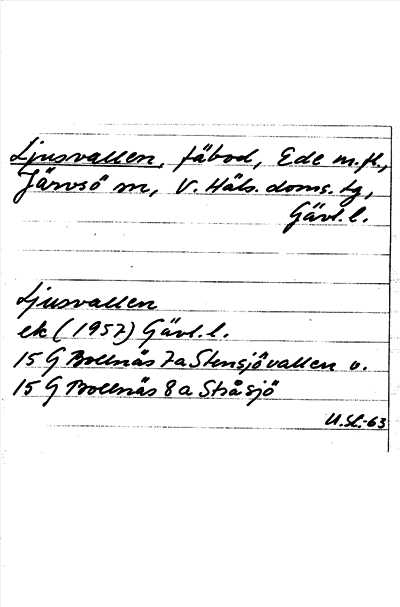 Ljusvallen, fäbod, Ede m.fl.,
Järvsö sn, V. Häls. doms. tg,
Gävl. l.
Ljusvallen
ek (1957) Gävl. l.
15 G Bollnäs 7a Stensjövallen o.
15 G Bollnäs 8a Stråsjö
U.Sl.-63